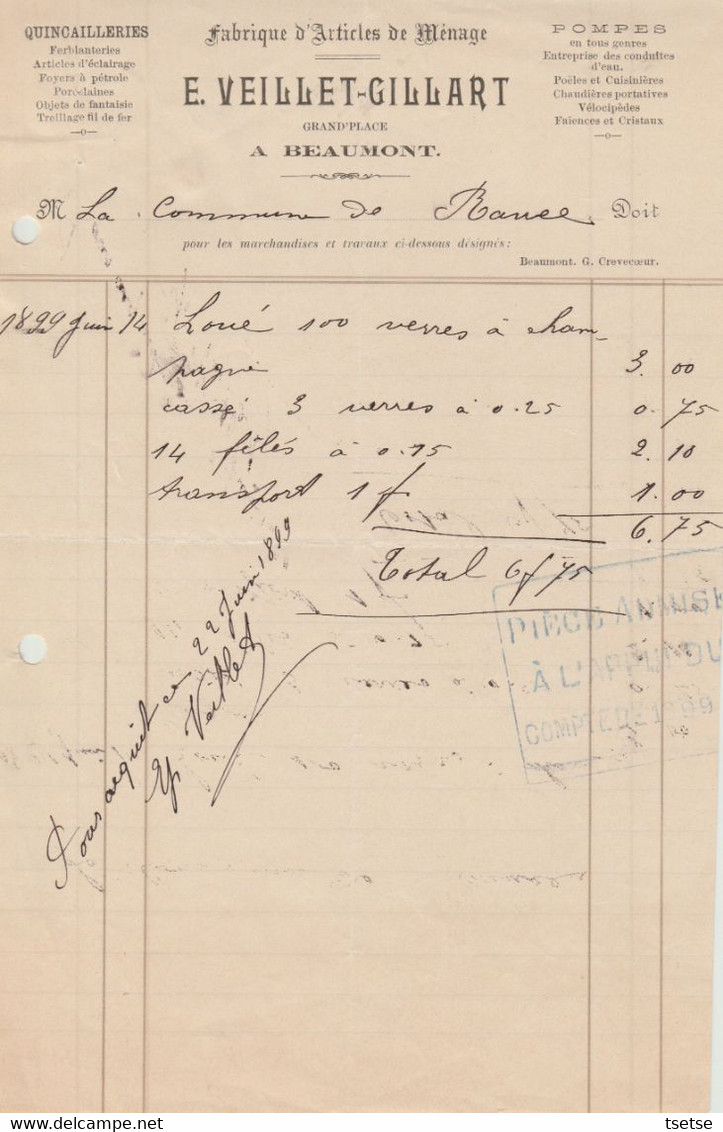 QUINCAILLERIES
Ferblanteries
Articles d'éclairage
Foyers à pétrole
Porcelaines
Objets de fantaisie
Treillage fil de fer
Fabrique d'Articles de Ménage
E. VEILLET-GILLART
GRAND'PLACE
A BEAUMONT.
POMPES
en tous genres
Entreprise des conduites
d'eau.
Poëles et Cuisinières
Chaudières portatives
Vélocipèdes
Faïences et Cristaux
M La Commune de Rance Doit
pour les marchandises et travaux ci-dessous désignés:
Beaumont. G. Crevecœur.
1899 Juin 14 Loué 100 verres à cham-
pagne 3.00
cassé 3 verres à 0.25 0.75
14 fêlés à 0.15 2.10
transport 1 f 1.00
6.75
Total 6f75
Pour acquit ce 22 Juin 1899
Veillet
PIÈCE ANNEXÉE
À L'APPUI DU
COMPTE DE 1899
tsetse